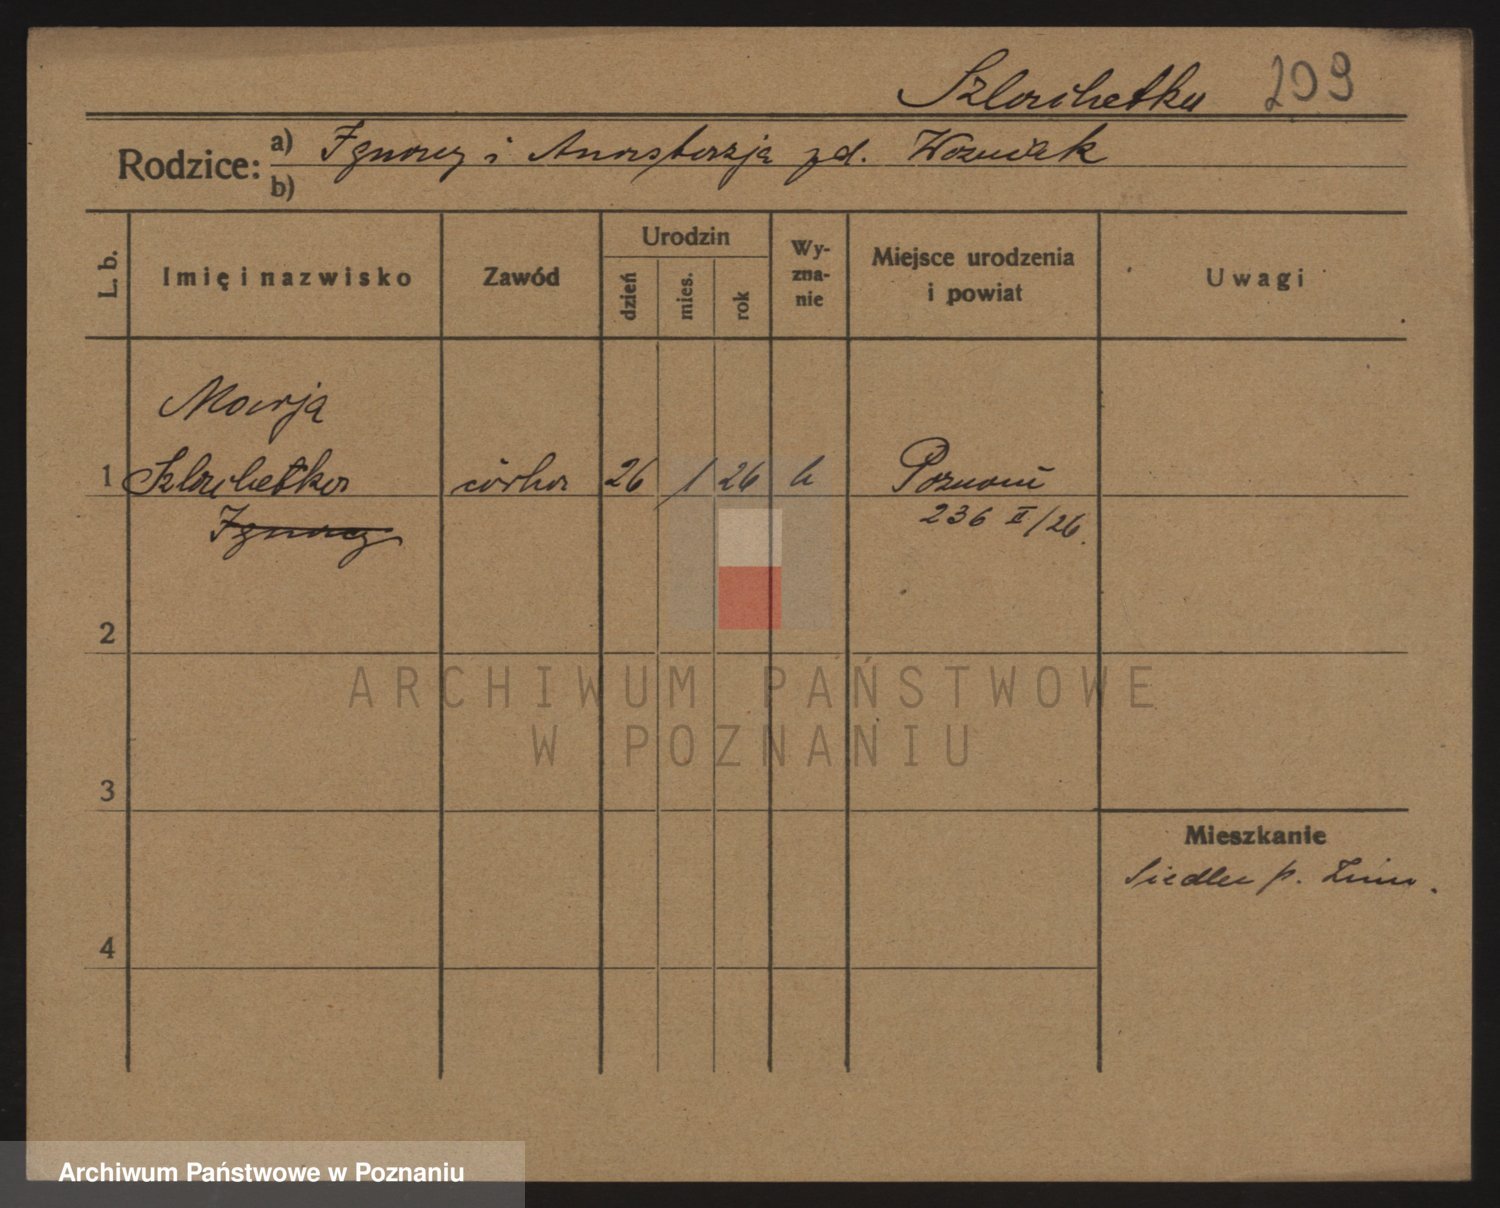 Szlachetka 209
Rodzice: a) Ignacy i Anastazja zd. Woźniak
b)
L. b. Imię i nazwisko Zawód Urodzin dzień mies. rok Wy-zna-nie Miejsce urodzenia i powiat Uwagi
Marja
1 Szlachetka córka 26 1 26 k Poznań
Ignacy 236 II/26.
2
ARCHIWUM PAŃSTWOWE
W POZNANIU
3
Mieszkanie
Siedlec p.
4
Archiwum Państwowe w Poznaniu